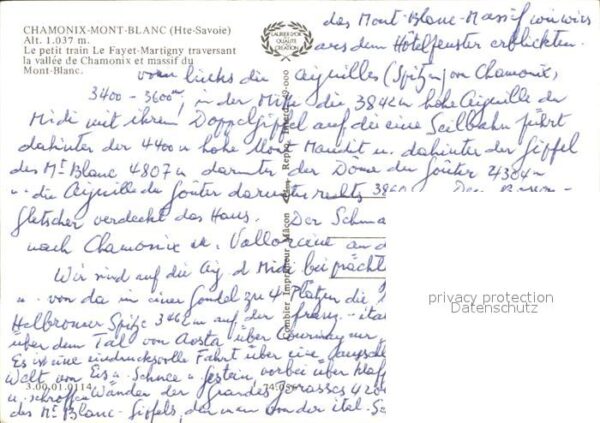 CHAMONIX-MONT-BLANC (Hte-Savoie)
Alt. 1.037 m.
Le petit train Le Fayet-Martigny traversant
la vallée de Chamonix et massif du
Mont-Blanc.
LAURIER D'OR
QUALITÉ
CREATION
das Mont-Blanc-Massif wie wir's
aus dem Hotelfenster erblickten.
vorn links die Aiguilles (Spitzen) von Chamonix,
3400 - 3600m, in der Mitte die 3842m hohe Aiguille du
Midi mit ihrem Doppelgipfel auf die eine Seilbahn führt
dahinter der 4400m hohe Mont Maudit u. dahinter der Gipfel
des Mt Blanc 4807m darunter der Dôme du Goûter 4304m
u. die Aiguille du Goûter darunter rechts
gletscher verdeckt das Haus. Der Schma
nach Chamonix u. Vallorcine an d
Wir sind auf die Aig. d Midi bei prächt
u. von da in einer Gondel zu 4 Plätzen die
Helbronner Spitze 3462m auf der franz.-ital
über dem Tal von Aosta über Courmayeur
Es ist eine eindrucksvolle Fahrt über eine
Welt von Eis u. Schnee u. Gestein vorbei über
u. schroffen Wänden der Grandes Jorasses 420
des Mt Blanc-Gipfels, den man von der ital-S
Combier Imprimeur Mâcon
3.00.01.0114
74.056
privacy protection
Datenschutz